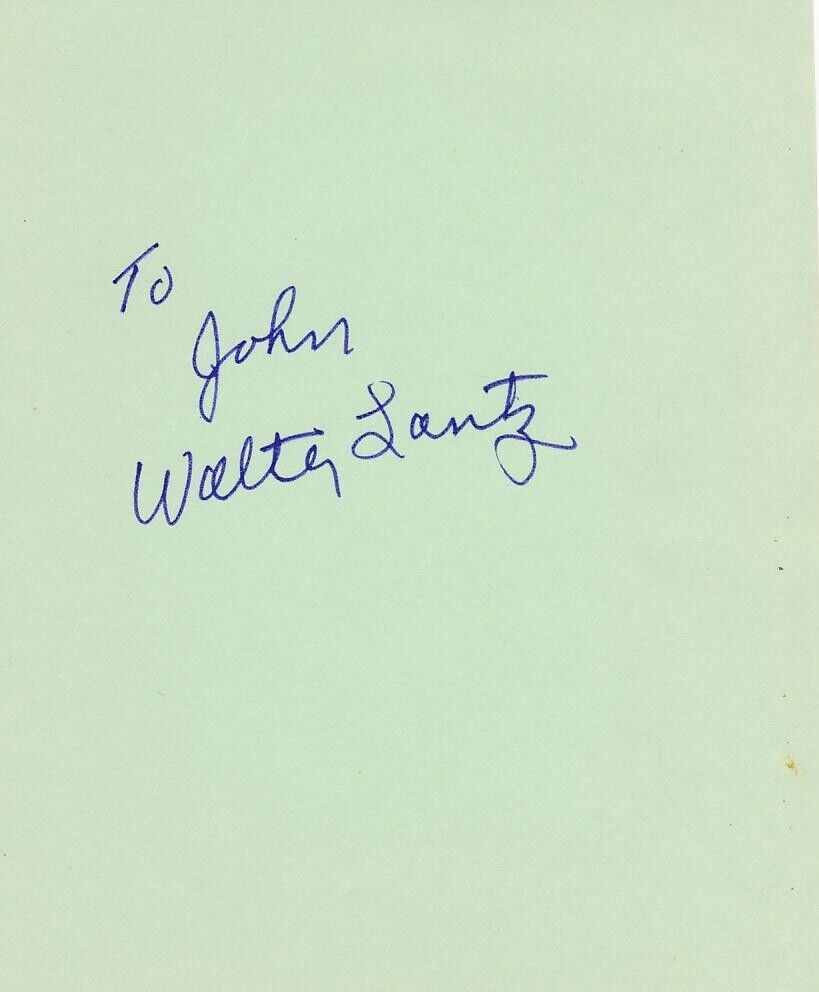 To
John
Walter Lantz